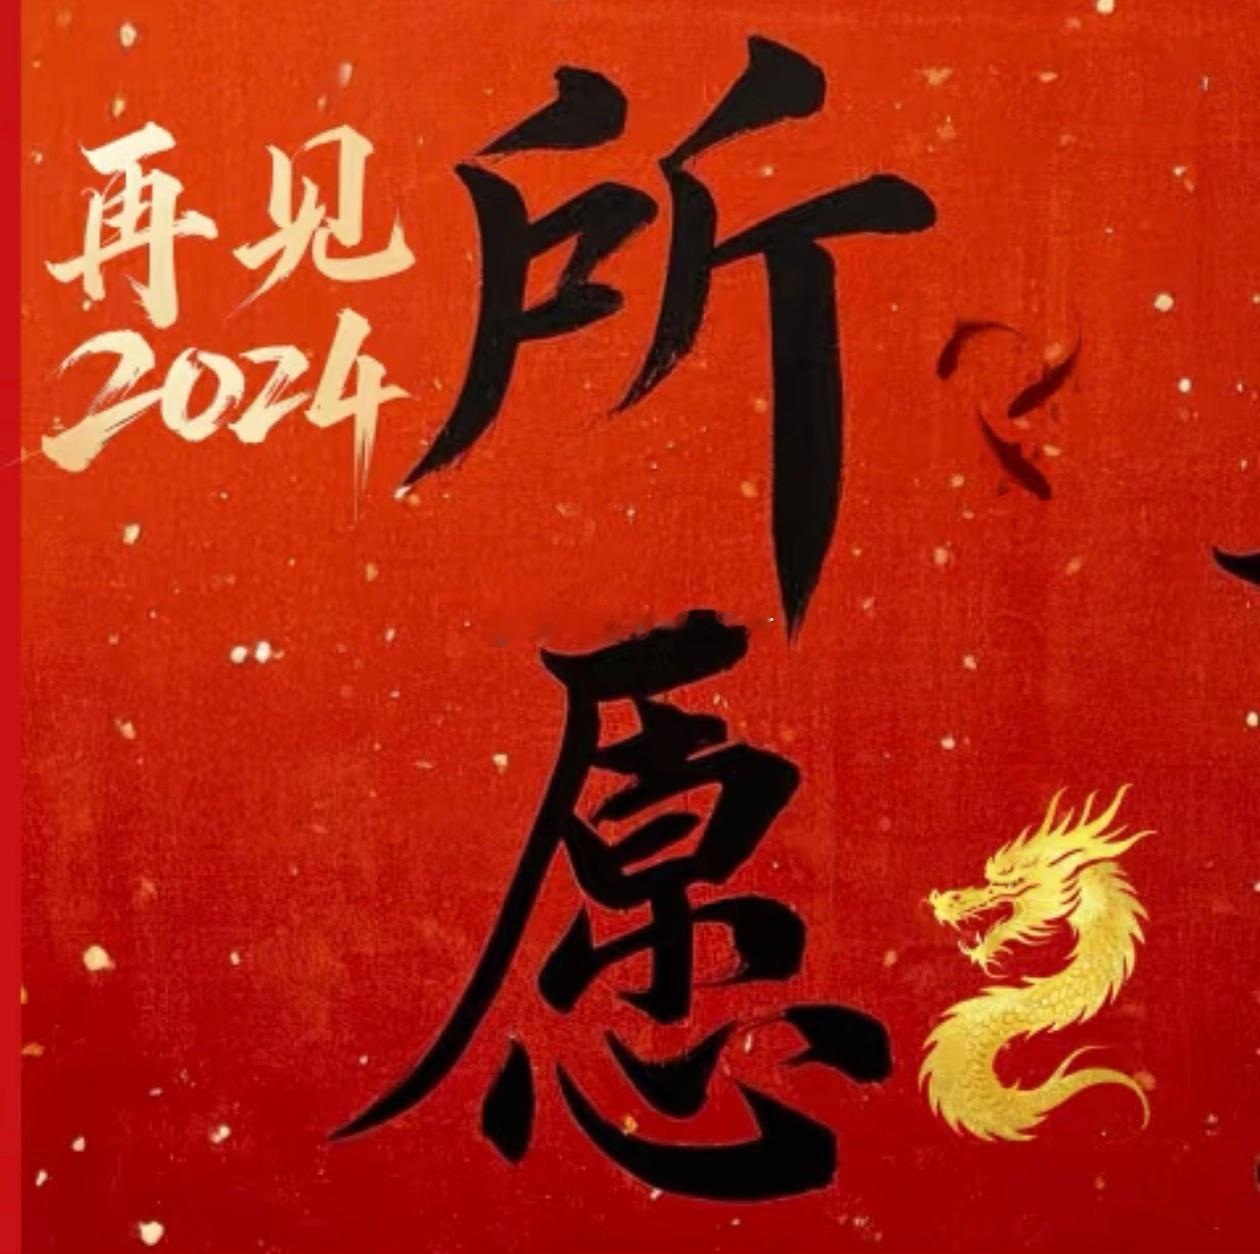 再见
2024
所
愿